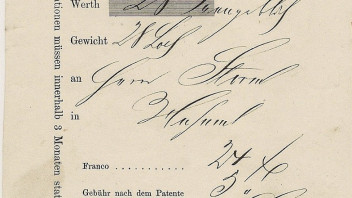 Werth
Gewicht 28 Loth
an Herrn Storm
in Husum
Franco 24
Gebühr nach dem Patente 3
ationen müssen innerhalb 3 Monaten stat